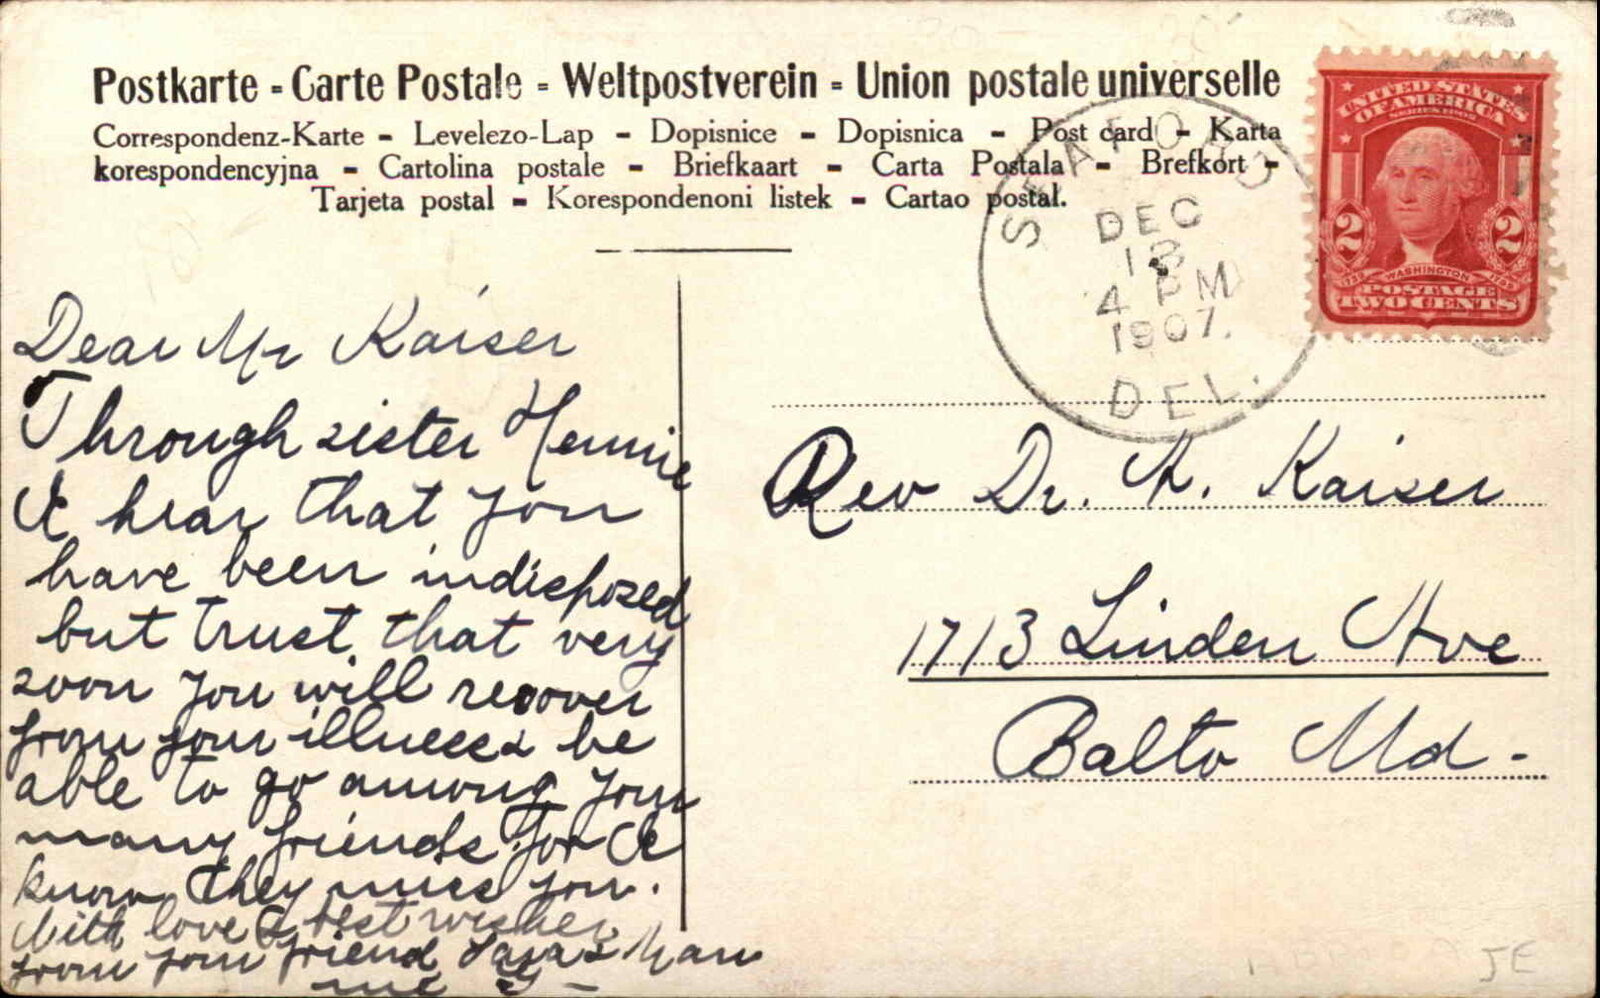 Postkarte - Carte Postale - Weltpostverein - Union postale universelle
Correspondenz-Karte - Levelezo-Lap - Dopisnice - Dopisnica - Post card - Karta
korespondencyjna - Cartolina postale - Briefkaart - Carta Postala - Brefkort -
Tarjeta postal - Korespondenoni listek - Cartao postal.
SEAFORD
DEC
13
4 PM
1907.
DEL.
UNITED STATES
OF AMERICA
SERIES 1902
2 2
1732 WASHINGTON 1799
POSTAGE
TWO CENTS
Dear Mr Kaiser
Through sister Hennie
I hear that you
have been indisposed
but trust that very
soon you will recover
from your illness & be
able to go among your
many friends for I
know they miss you.
With love & best wishes
from your friend
Rev Dr. A. Kaiser
1713 Linden Ave
Balto Md -
JE